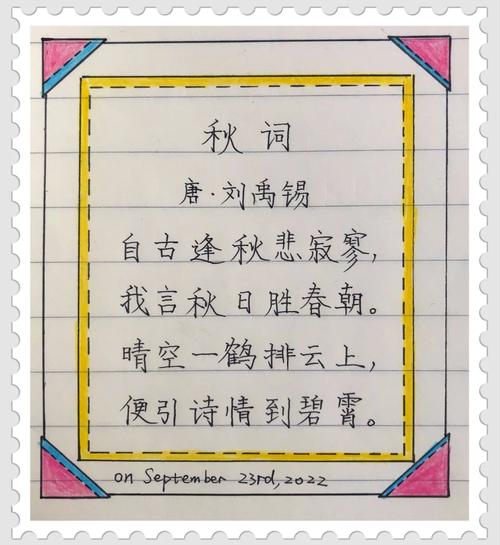 秋词
唐·刘禹锡
自古逢秋悲寂寥,
我言秋日胜春朝。
晴空一鹤排云上,
便引诗情到碧霄。
on September 23rd, 2022